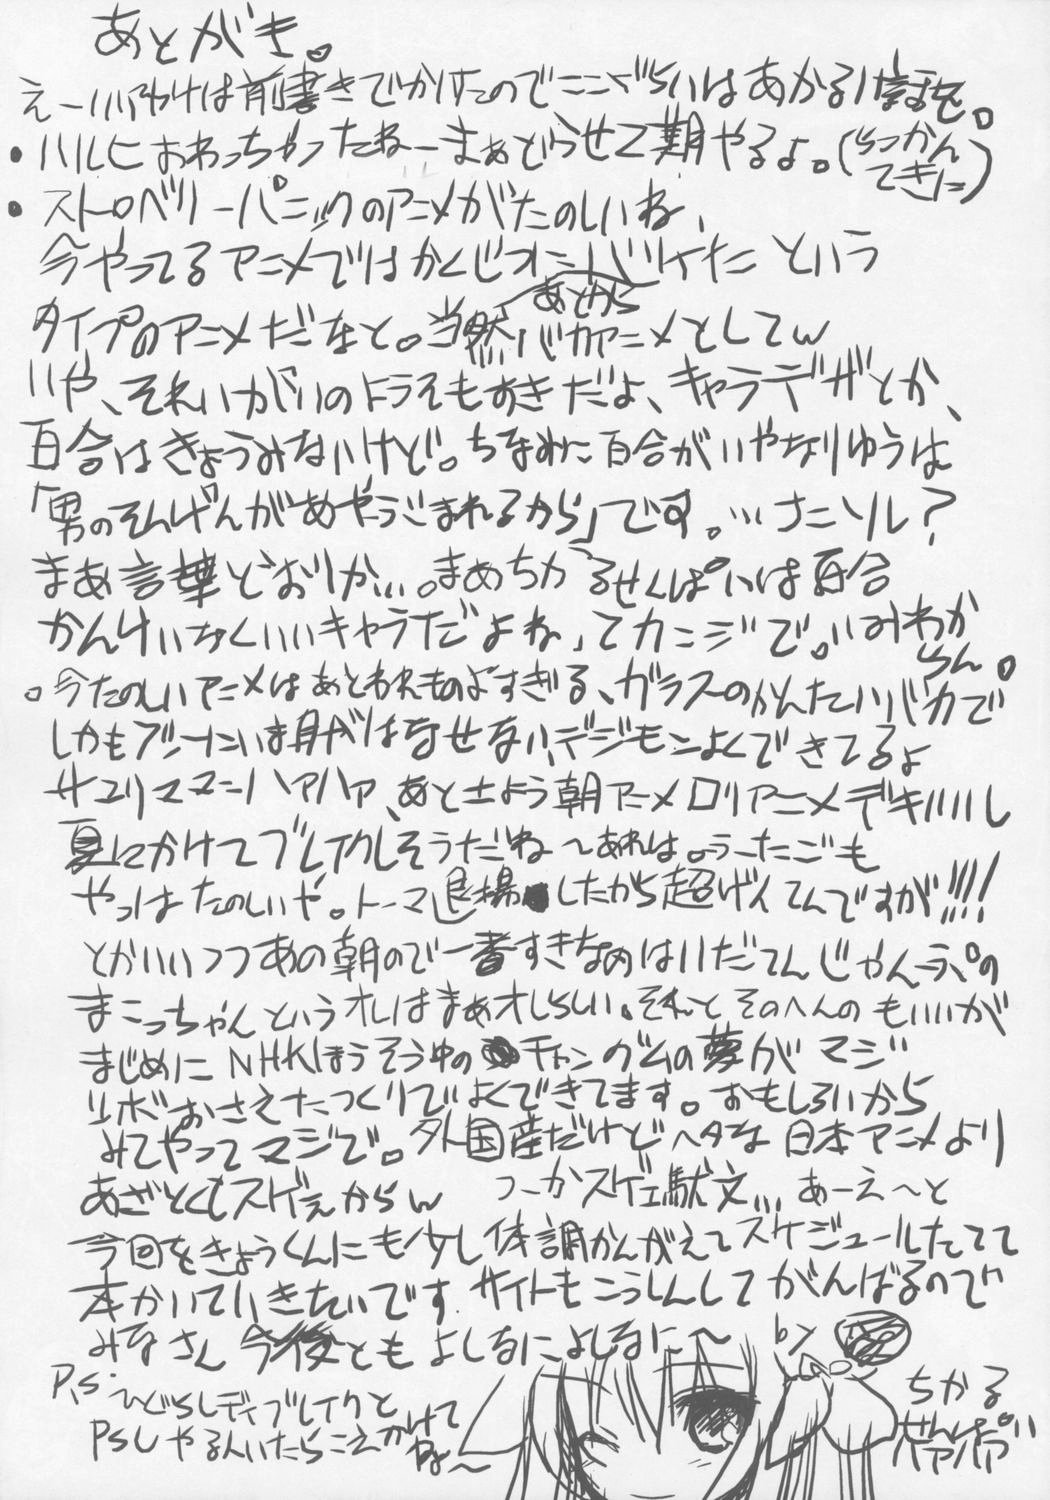 あとがき。
えーいいわけは前書きでかけたのでここぐらいはあかるい話を。
・ハルヒおわっちゃったねーまぁどうせ2期やるよ。(らっかんてきに)
・ストロベリーパニックのアニメがたのしいね、
今やってるアニメではかくじつにバケたという
タイプのアニメだなと。当然あとからバカアニメとしてw
いや、それいがいのドラマもすきだよ、キャラデザとか、
百合はきょうみないけど。ちなみに百合がいやなりゆうは
「男のそんげんがあやうごまれるから」です。…ナニソレ?
まあ言葉どおりか…。まあちかるせんぱいは百合
かんけいなくいいキャラだよね、てカンジで。いみわからん。
。今たのしいアニメはあとわれものよすぎる、ガラスのかんたいバカで
しかもブソーにいま目がはなせない、デジモンよくできてるよ
サユリママンハァハァ、あと土よう朝アニメロリアニメデキいいし
夏にかけてブレイクしそうだね〜あれは。うーたごも
やっぱたのしいや。トーマ退場したから超げんてんですが!!!!
とかいいつつあの朝ので一番すきなのはいだてんじゃんぷの
まこっちゃんというオレはまぁオレらしい。それとそのへんのもいいが
まじめにNHKほうそう中のチャングムの夢がマジ
リボおさえたつくりでよくできてます。おもしろいから
みてやってマジで。外国産だけどヘタな日本アニメより
あざとくもスゲぇからw つーかスゲェ駄文… あーえ〜と
今回をきょうくんにも少し体調かんがえてスケジュールたてて
本かいていきたいです。サイトもこうしんしてがんばるので
みなさん今後ともよしなによしなに〜 by
P.S. ひぐらしデイブレイクと
PSUやる人いたらこえかけて
ね〜
ちかる
せんぱい
ハァハァ